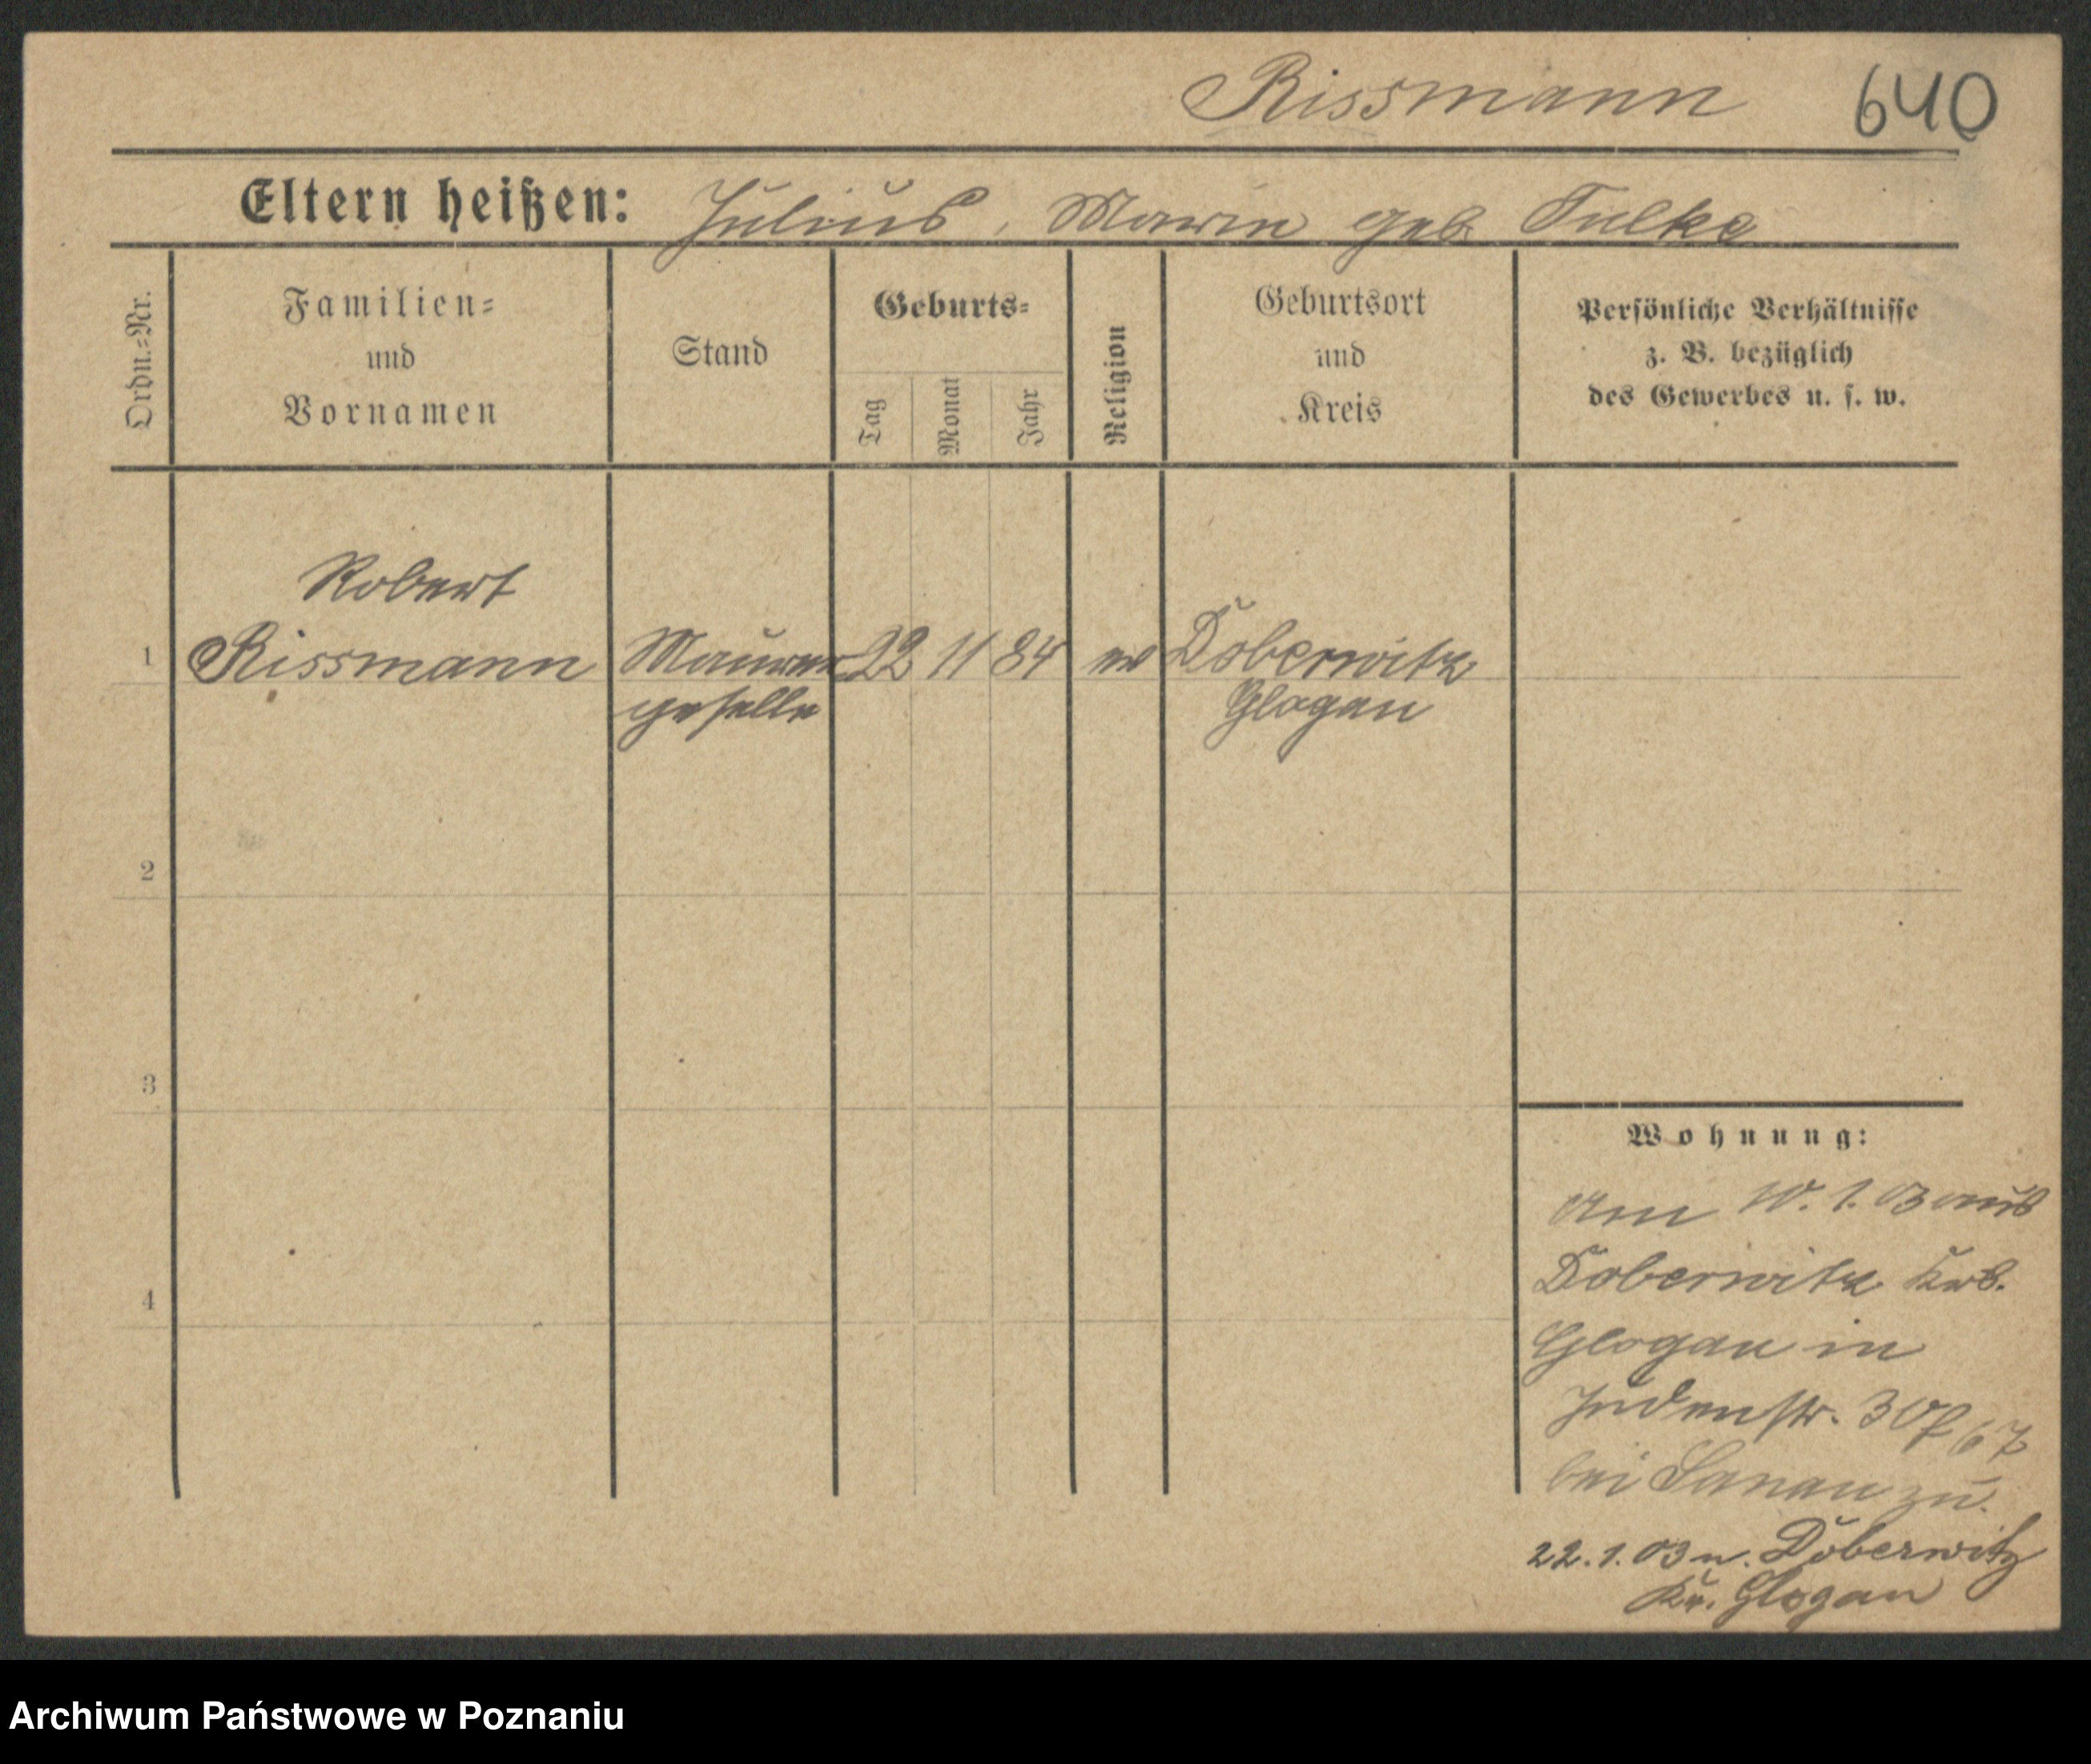 Rissmann 640
Eltern heißen: Julius, Marie geb. Tulke
Ordn.=Nr.
Familien=
und
Vornamen
Stand
Geburts=
Tag
Monat
Jahr
Religion
Geburtsort
und
Kreis
Persönliche Verhältnisse
z. B. bezüglich
des Gewerbes u. s. w.
Robert
1 Rissmann Maurer 22 11 84 ev Doberwitz
geselle Glogau
2
3
4
Wohnung:
Am 10. 1. 03 aus
Doberwitz Krs.
Glogau in
Judenstr. 30
bei zu.
22. 1. 03 n. Doberwitz
Kr. Glogau
Archiwum Państwowe w Poznaniu